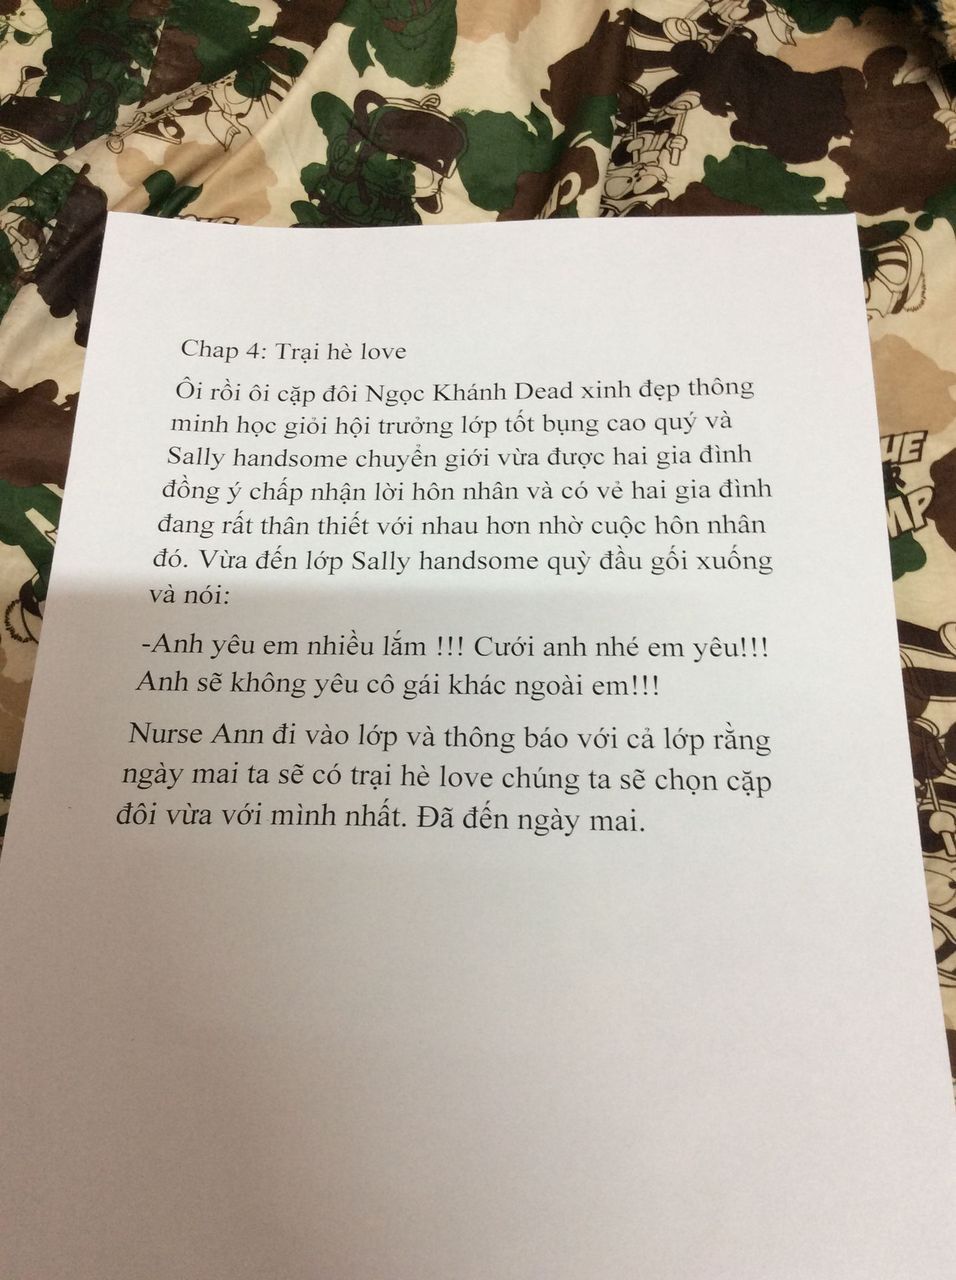 Chap 4: Trại hè love
Ôi rồi ôi cặp đôi Ngọc Khánh Dead xinh đẹp thông
minh học giỏi hội trưởng lớp tốt bụng cao quý và
Sally handsome chuyển giới vừa được hai gia đình
đồng ý chấp nhận lời hôn nhân và có vẻ hai gia đình
đang rất thân thiết với nhau hơn nhờ cuộc hôn nhân
đó. Vừa đến lớp Sally handsome quỳ đầu gối xuống
và nói:
-Anh yêu em nhiều lắm !!! Cưới anh nhé em yêu!!!
Anh sẽ không yêu cô gái khác ngoài em!!!
Nurse Ann đi vào lớp và thông báo với cả lớp rằng
ngày mai ta sẽ có trại hè love chúng ta sẽ chọn cặp
đôi vừa với mình nhất. Đã đến ngày mai.